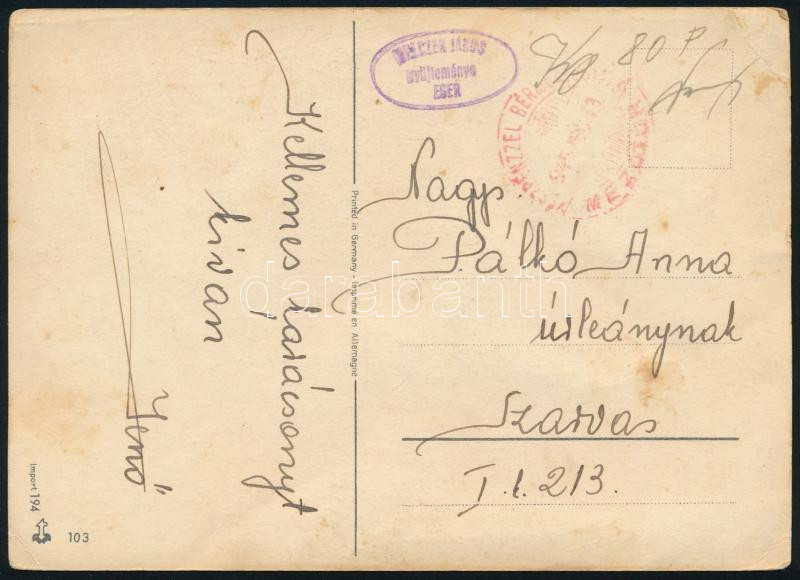 Kellemes karácsonyt
kiván
Jenő
JÁNOS
gyűjteménye
EGER
80 P
Nagys.
Pálkó Anna
úrleánynak
Szarvas
I. k. 213.
Printed in Germany - Imprimé en Allemagne
Import 194
103
darabanth